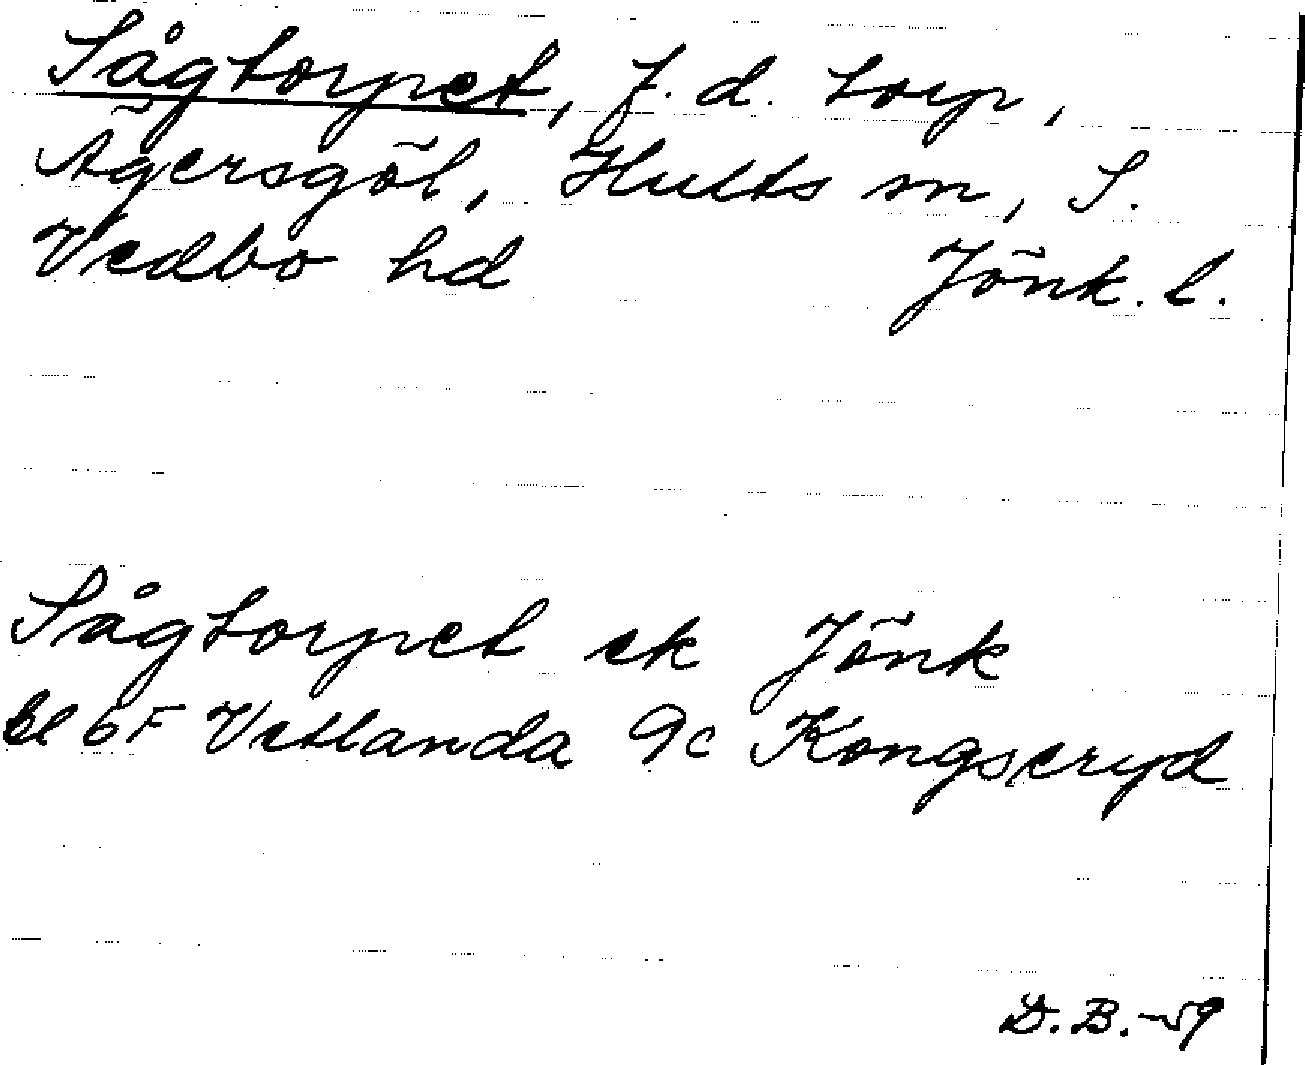 Sågtorpet, f.d. torp,
Ägersgöl, Hults sn, S.
Vedbo hd Jönk. l.
Sågtorpet ek Jönk
bl 6F Vetlanda 9c Kongseryd
D.B.-59